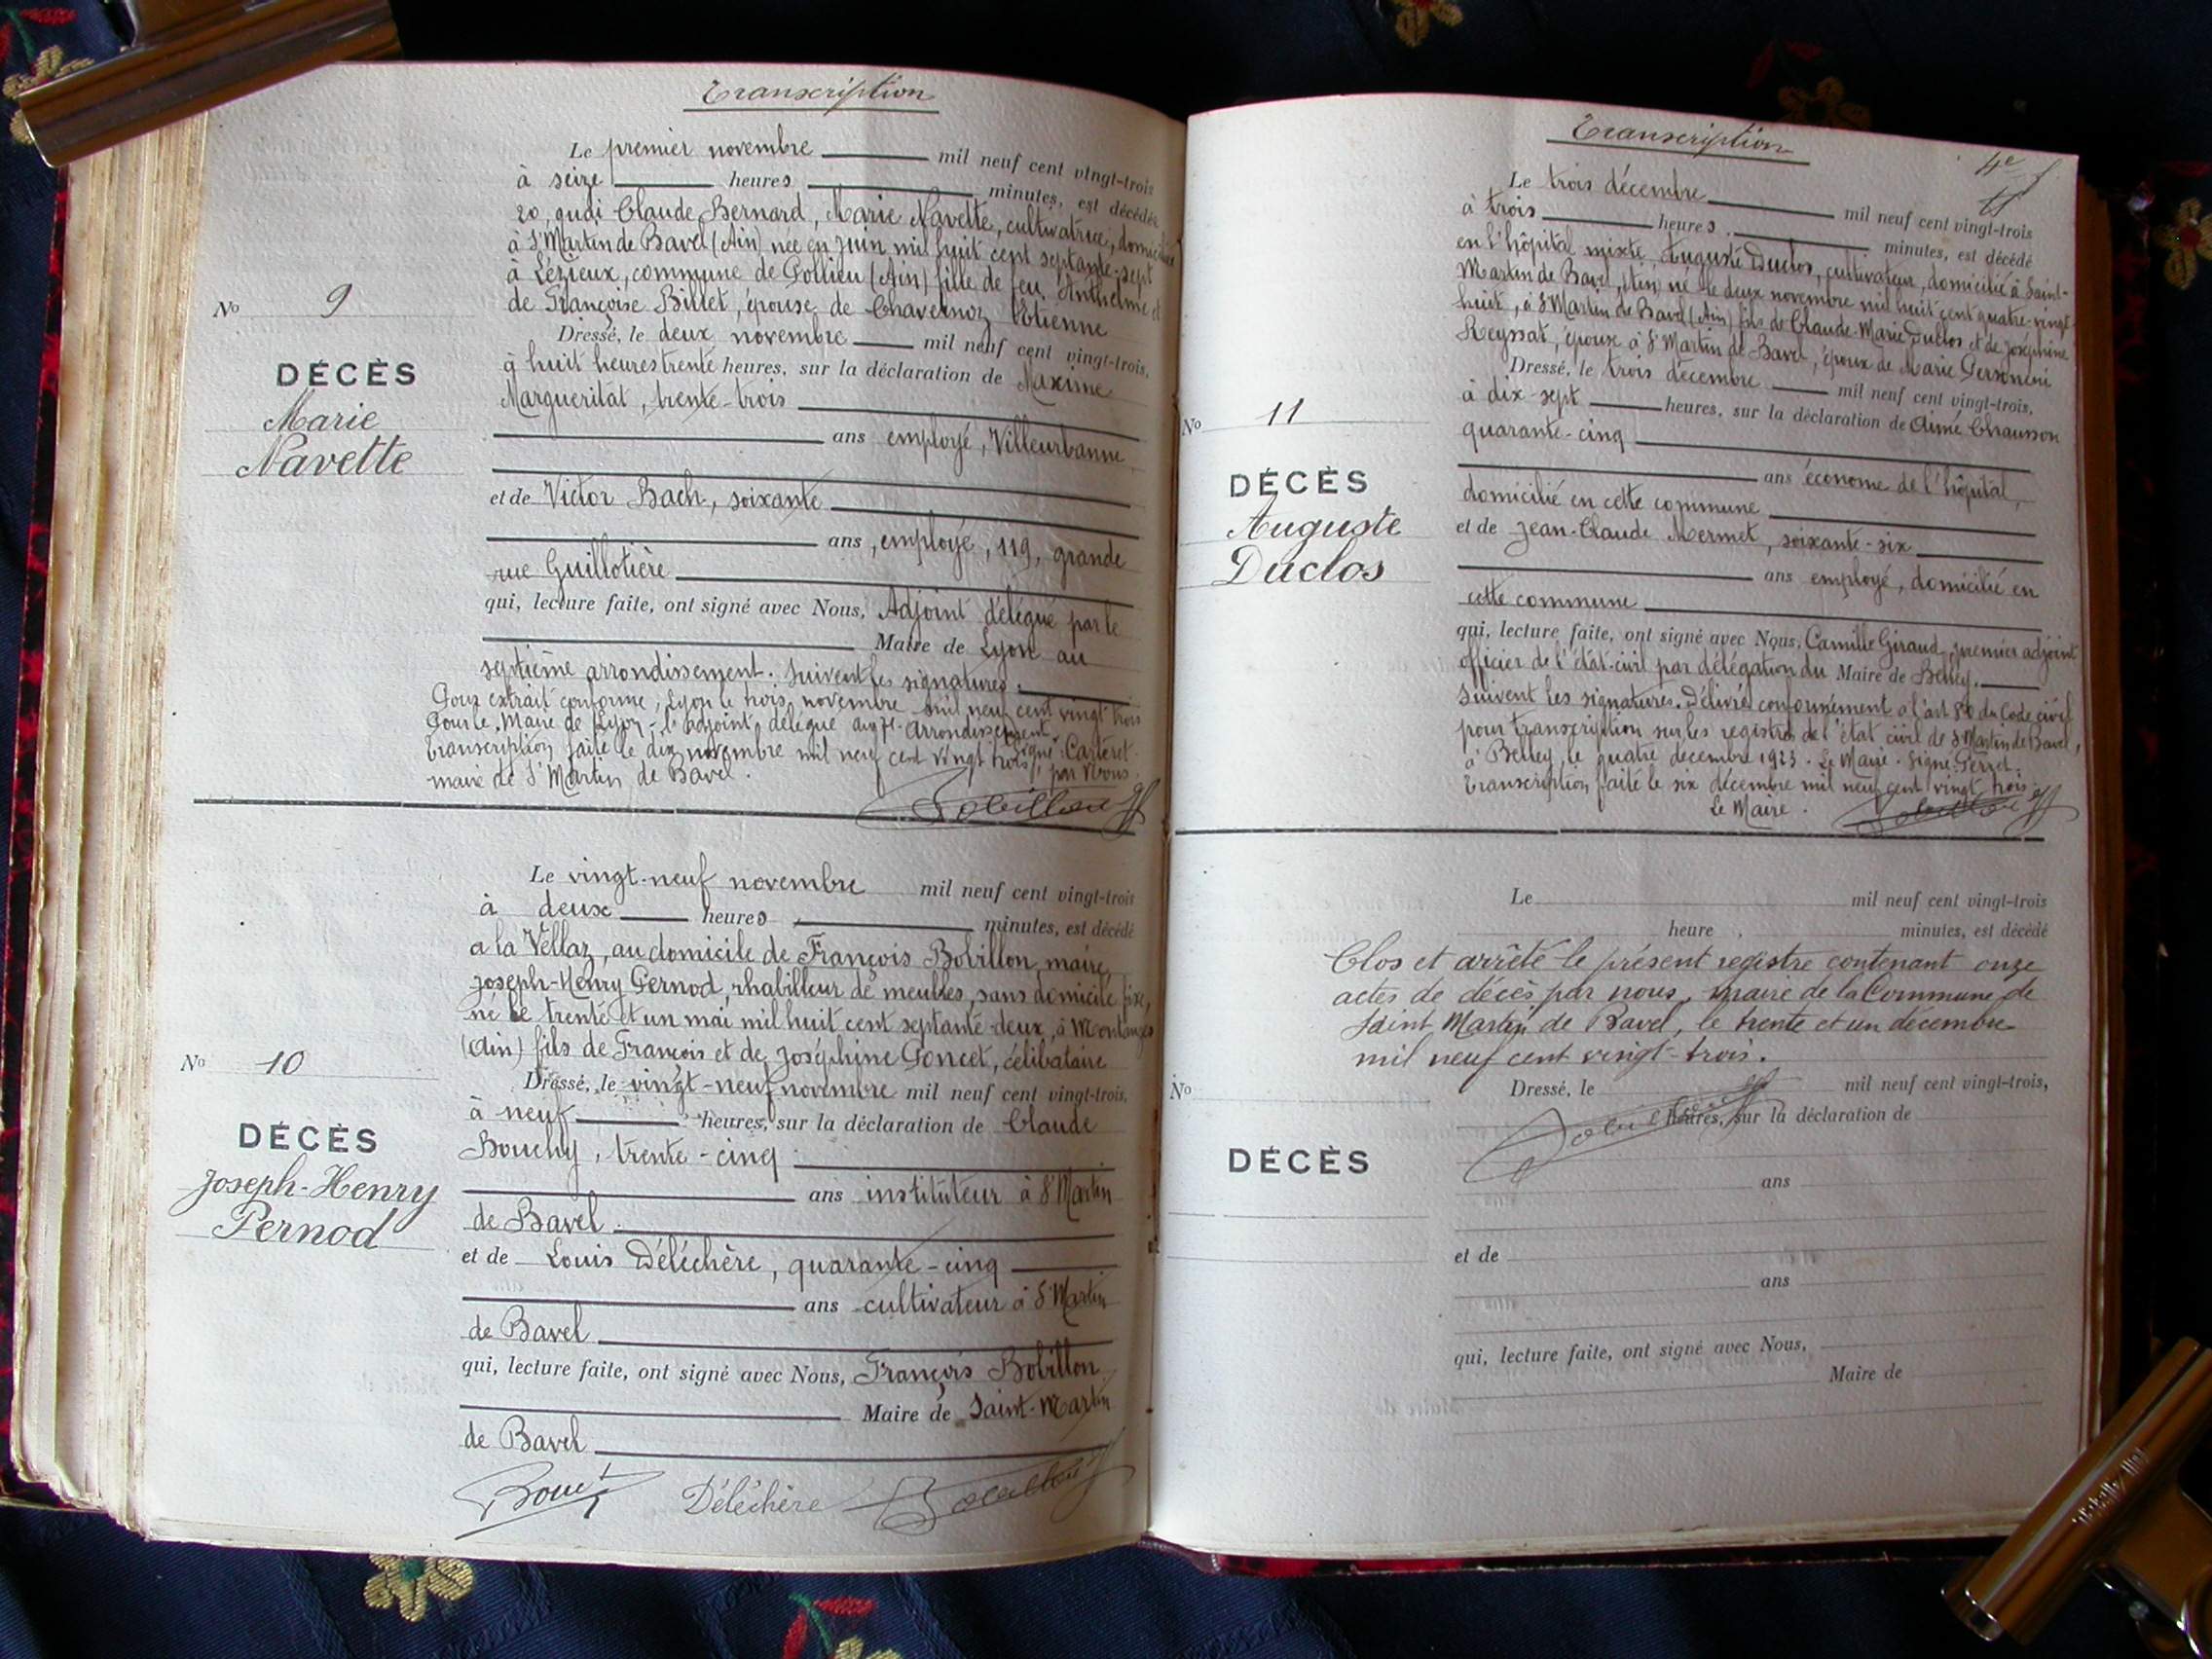 Transcription
Le premier novembre mil neuf cent vingt-trois
à seize heures minutes, est décédée
20, quai Claude Bernard, Marie Navette, cultivatrice, domiciliée
à St Martin de Bavel (Ain) née en juin mil huit cent septante-sept
à Lézieux, commune de Pollieu (Ain) fille de feu Anthelme et
de Françoise Billet, épouse de Chavernoz Etienne
Dressé, le deux novembre mil neuf cent vingt-trois,
à huit heures trente heures, sur la déclaration de Maxime
Margueritat, trente-trois
ans employé, Villeurbanne
et de Victor Bach, soixante
ans, employé, 119, grande
rue Guillotière
qui, lecture faite, ont signé avec Nous, Adjoint délégué par le
Maire de Lyon au
septième arrondissement. Suivent les signatures.
Pour extrait conforme, Lyon le trois novembre mil neuf cent vingt trois
Pour le Maire de Lyon - l'adjoint délégué au 7e Arrondissement.
Signé: Carteret.
Transcription faite le dix novembre mil neuf cent vingt trois, par Nous
maire de St Martin de Bavel.
Bobillon
No 9
DÉCÈS
Marie
Navette
Le vingt-neuf novembre mil neuf cent vingt-trois
à deux heures minutes, est décédé
a la Vellaz, au domicile de François Bobillon, maire,
Joseph-Henry Pernod, rhabilleur de meules, sans domicile fixe,
né le trente et un mai mil huit cent septante-deux, à Montanges
(Ain) fils de François et de Joséphine Poncet, célibataire
Dressé, le vingt-neuf novembre mil neuf cent vingt-trois,
à neuf heures, sur la déclaration de Claude
Bouchy, trente-cinq
ans instituteur à St Martin
de Bavel.
et de Louis Déléchère, quarante-cinq
ans cultivateur à St Martin
de Bavel
qui, lecture faite, ont signé avec Nous, François Bobillon
Maire de Saint-Martin
de Bavel
Déléchère Bobillon
No 10
DÉCÈS
Joseph-Henry
Pernod
Transcription
Le trois décembre mil neuf cent vingt-trois
à trois heures minutes, est décédé
en l'hôpital mixte, Auguste Duclos, cultivateur, domicilié à Saint-
Martin de Bavel, (Ain) né le deux novembre mil huit cent quatre-vingt-
huit, à St Martin de Bavel (Ain) fils de Claude-Marie Duclos et de Joséphine
Reyssat, époux à St Martin de Bavel, époux de Marie Personeni
Dressé, le trois décembre mil neuf cent vingt-trois,
à dix-sept heures, sur la déclaration de Aimé Chausson
quarante-cinq
ans économe de l'hôpital,
domicilié en cette commune
et de Jean-Claude Mermet, soixante-six
ans employé, domicilié en
cette commune
qui, lecture faite, ont signé avec Nous, Camille Giraud, premier adjoint
officier de l'état-civil par délégation du Maire de Belley.
Suivent les signatures. Délivré conformément à l'art 80 du Code civil
pour transcription sur les registres de l'état civil de St Martin de Bavel,
à Belley, le quatre décembre 1923. Le Maire. Signé:
Transcription faite le six décembre mil neuf cent vingt trois
Le Maire. Bobillon
No 11
DÉCÈS
Auguste
Duclos
Le mil neuf cent vingt-trois
heure minutes, est décédé
Clos et arrêté le présent registre contenant onze
actes de décès par nous, maire de la Commune de
Saint Martin de Bavel, le trente et un décembre
mil neuf cent vingt-trois.
Dressé, le mil neuf cent vingt-trois,
Bobillon heures, sur la déclaration de
ans
et de
ans
qui, lecture faite, ont signé avec Nous,
Maire de
No
DÉCÈS